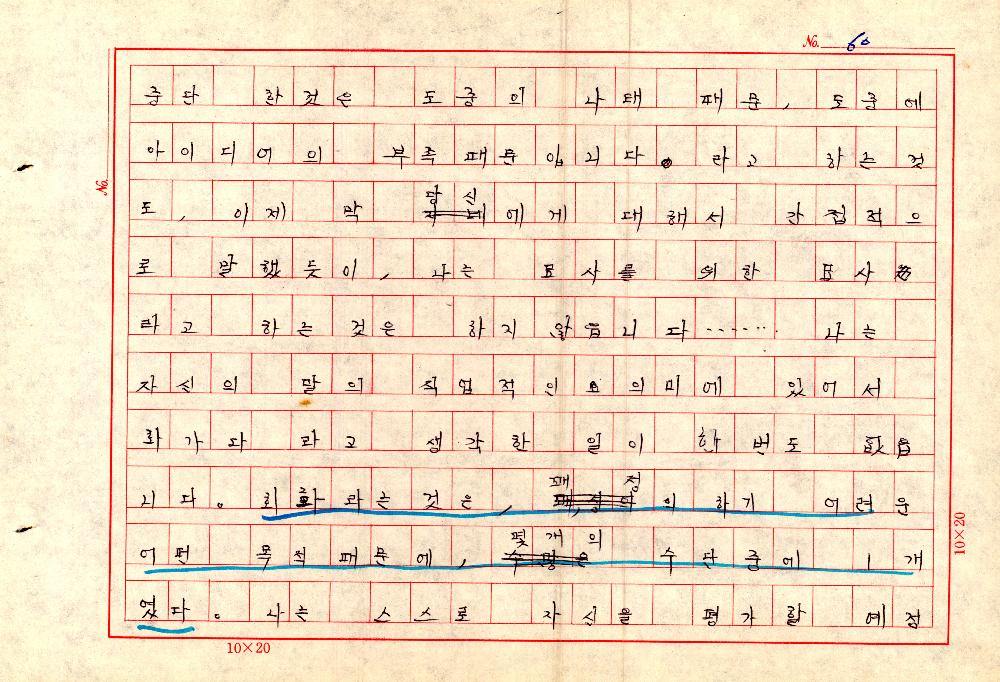 No. 60
중단 한것은 도중의 나태 때문, 도중에
아이디어의 부족 때문입니다. 라고 하는 것
도, 이제 막 당신에게 대해서 간접적으
로 말했듯이, 나는 묘사를 위한 묘사
라고 하는 것은 하지 않습니다…… 나는
자신의 말의 직업적인 의미에 있어서
화가다 라고 생각한 일이 한번도 없습
니다. 회화라는 것은, 정의하기 어려운
어떤 목적 때문에, 몇개의 수단 중에 1개
였다. 나는 스스로 자신을 평가할 예정
No.
10×20
10×20